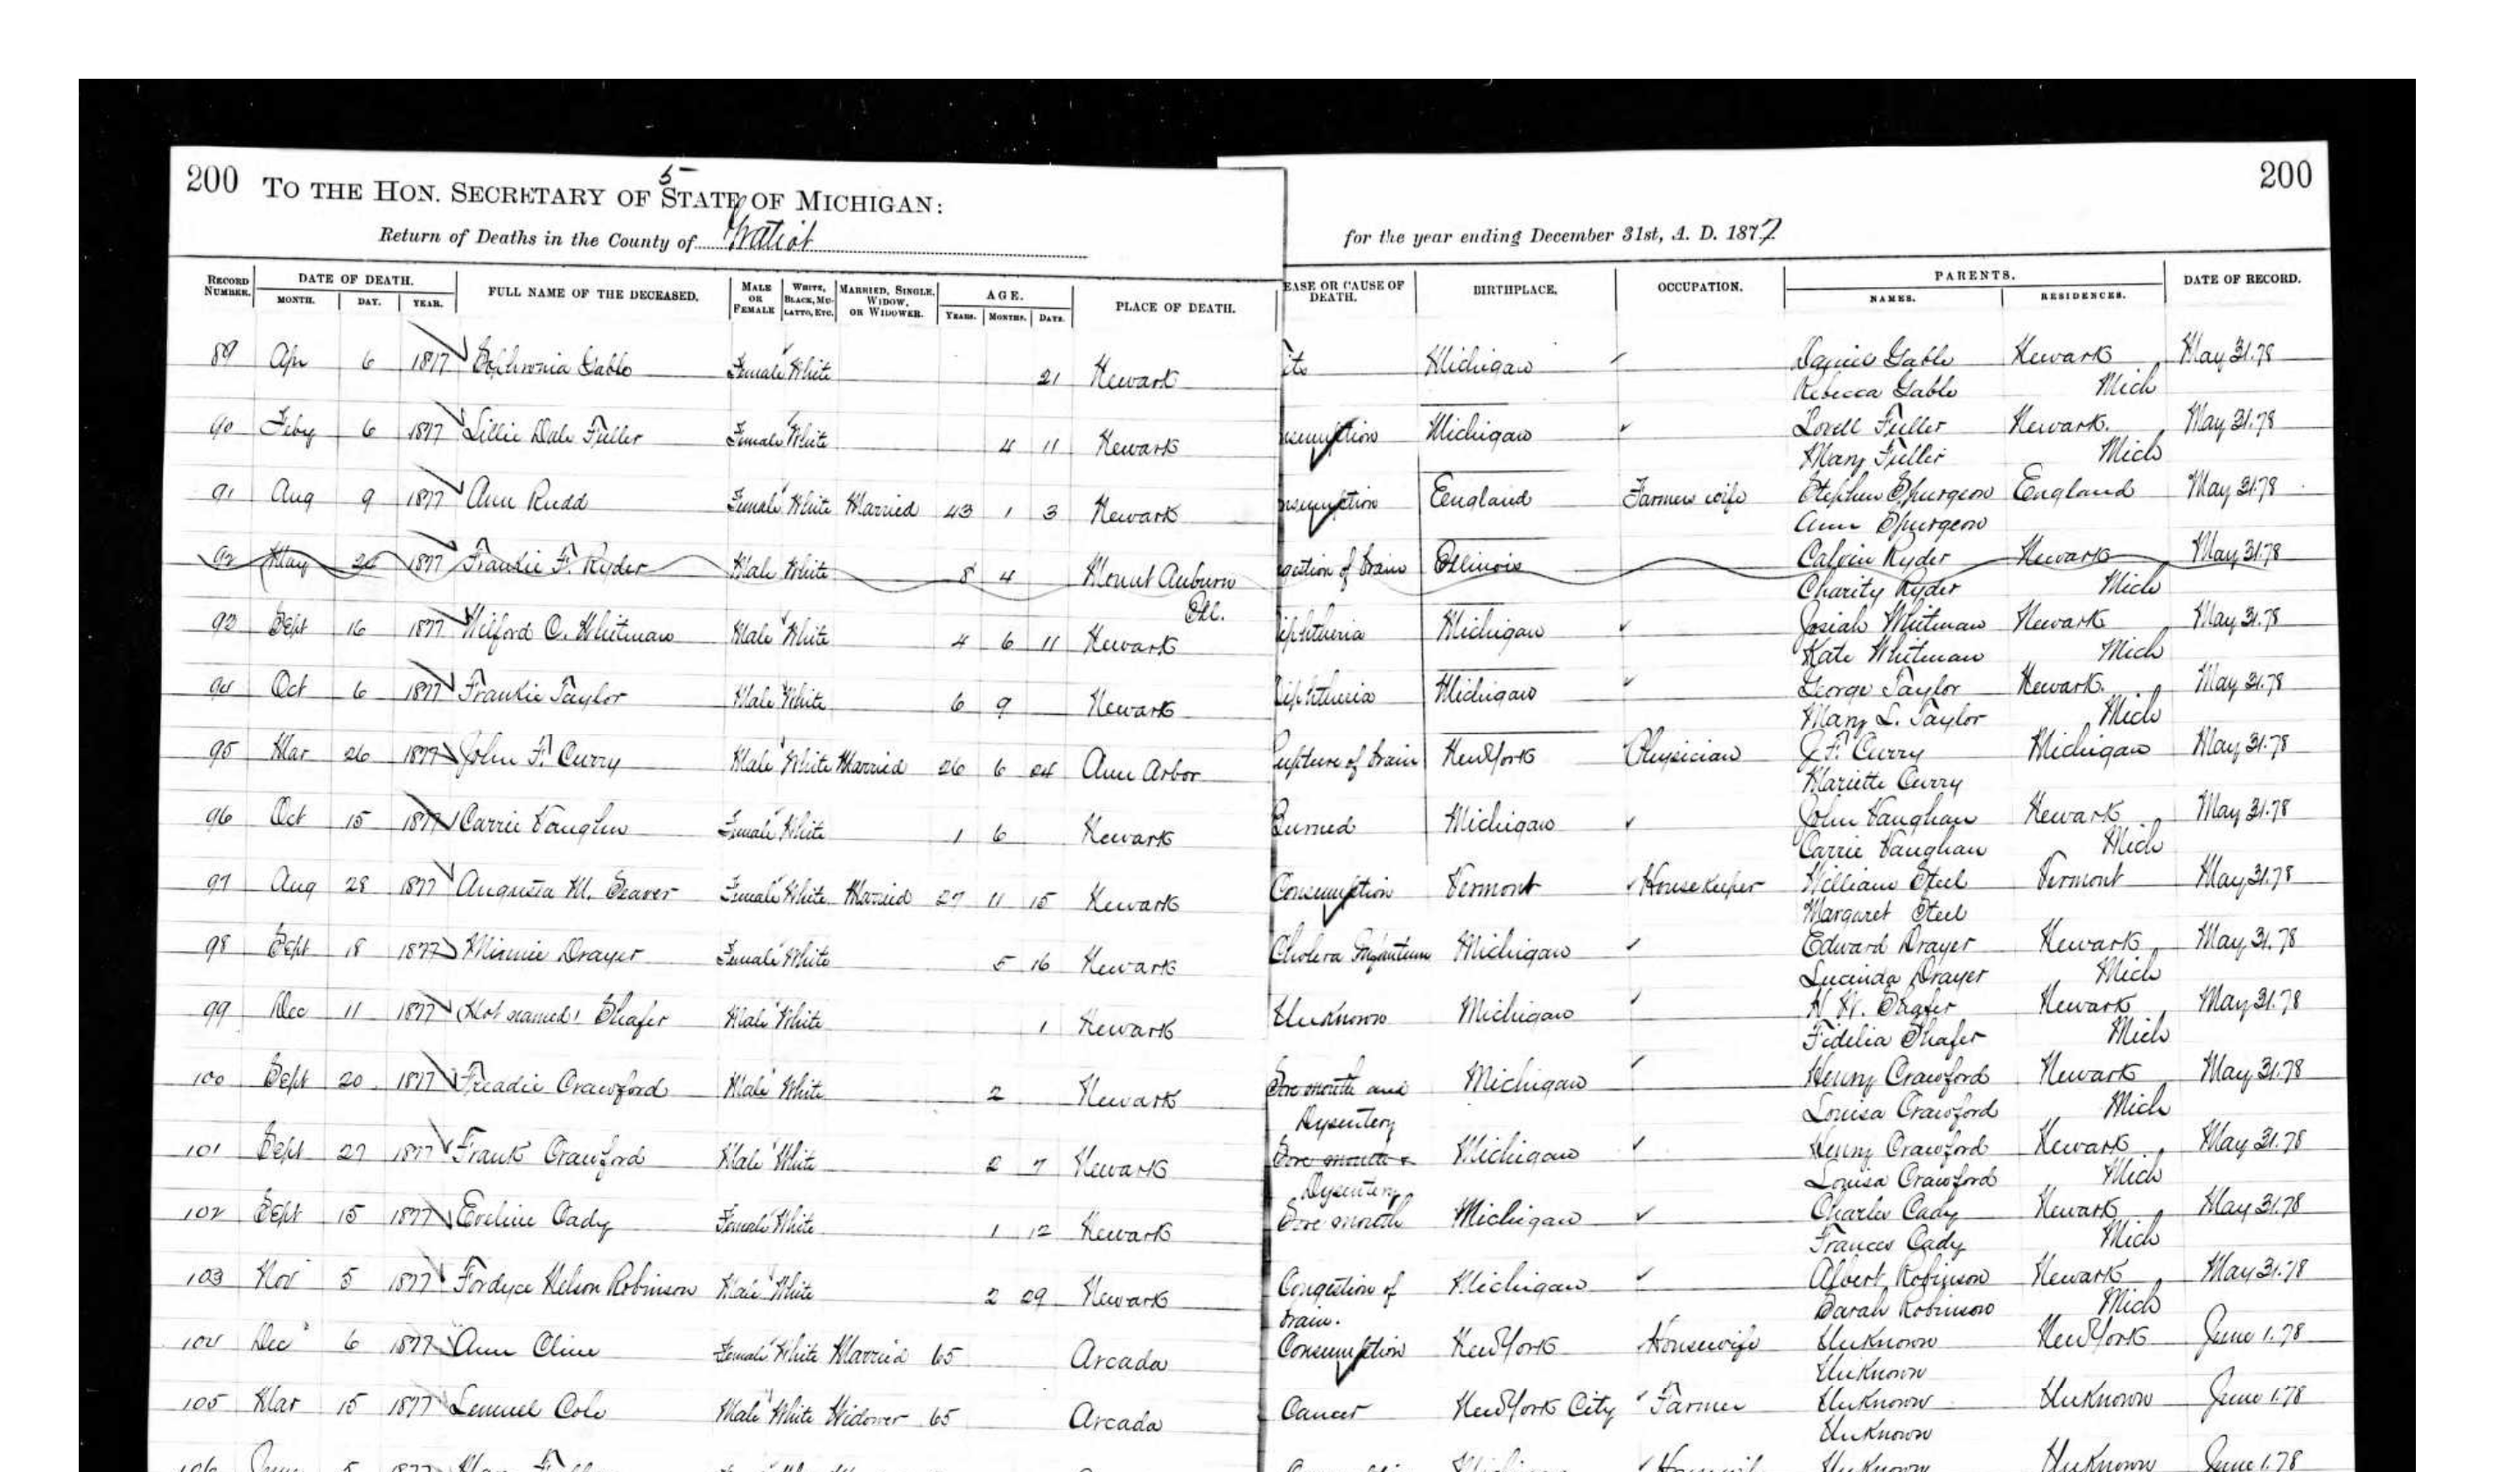 200 TO THE HON. SECRETARY OF STATE OF MICHIGAN: 200
5
Return of Deaths in the County of Gratiot for the year ending December 31st, A. D. 1877.
RECORD NUMBER. DATE OF DEATH. MONTH. DAY. YEAR. FULL NAME OF THE DECEASED. MALE OR FEMALE WHITE, BLACK, MULATTO, ETC. MARRIED, SINGLE, WIDOW, OR WIDOWER. AGE. YEARS. MONTHS. DAYS. PLACE OF DEATH. EASE OR CAUSE OF DEATH. BIRTHPLACE. OCCUPATION. PARENTS. NAMES. RESIDENCES. DATE OF RECORD.
89 Apr 6 1877 Sophronia Gable Female White 21 Newark its Michigan Daniel Gable Newark May 31.78
Rebecca Gable Mich
90 Feby 6 1877 Lillie Dale Fuller Female White 4 11 Newark nsumption Michigan Lovell Fuller Newark. May 31.78
Mary Fuller Mich
91 Aug 9 1877 Ann Rudd Female White Married 43 1 3 Newark nsumption England Farmers wife Stephen Spurgeon England May 31.78
Ann Spurgeon
92 May 26 1877 Frankie F. Ryder Male White 8 4 Mount Auburn gestion of brain Illinois Calvin Ryder Newark May 31.78
Ill. Charity Ryder Mich
93 Sept 16 1877 Wilford O. Whitman Male White 4 6 11 Newark iphtheria Michigan Josiah Whitman Newark May 31.78
Kate Whitman Mich
94 Oct 6 1877 Frankie Taylor Male White 6 9 Newark iphtheria Michigan George Taylor Newark. May 31.78
Mary L. Taylor Mich
95 Mar 26 1877 John F. Curry Male White Married 26 6 24 Ann Arbor Rupture of brain New York Physician J. F. Curry Michigan May 31.78
Mariette Curry
96 Oct 15 1877 Carrie Vaughn Female White 1 6 Newark Burned Michigan John Vaughan Newark May 31.78
Carrie Vaughan Mich
97 Aug 28 1877 Augusta M. Seaver Female White Married 27 11 15 Newark Consumption Vermont House Keeper William Steel Vermont May 31.78
Margaret Steel
98 Sept 18 1877 Minnie Drayer Female White 5 16 Newark Cholera Infantum Michigan Edward Drayer Newark May 31.78
Lucinda Drayer Mich
99 Dec 11 1877 Not named Shafer Male White 1 Newark Unknown Michigan Shafer Newark May 31.78
Fidelia Shafer Mich
100 Sept 20 1877 Freadie Crawford Male White 2 Newark Sore mouth and Michigan Henry Crawford Newark May 31.78
Dysentery Louisa Crawford Mich
101 Sept 27 1877 Frank Crawford Male White 2 7 Newark Sore mouth & Michigan Henry Crawford Newark May 31.78
Dysentery Louisa Crawford Mich
102 Sept 15 1877 Eveline Cady Female White 1 12 Newark Sore mouth Michigan Charles Cady Newark May 31.78
Frances Cady Mich
103 Nov 5 1877 Fordyce Nelson Robinson Male White 2 29 Newark Congestion of Michigan Albert Robinson Newark May 31.78
brain. Sarah Robinson Mich
104 Dec 6 1877 Ann Cline Female White Married 65 Arcada Consumption New York Housewife Unknown New York June 1.78
Unknown
105 Mar 15 1877 Lemuel Cole Male White Widower 65 Arcada Cancer New York City Farmer Unknown Unknown June 1.78
Unknown
106 5 1877 Unknown Unknown June 1.78